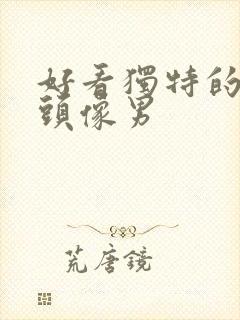 好看獨特的
頭像男
荒唐鏡